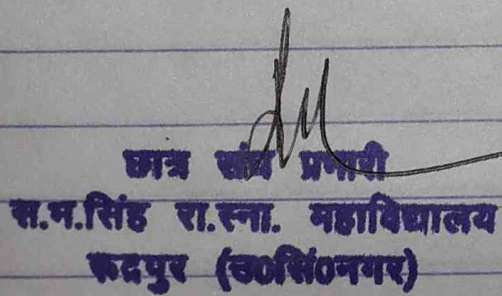 छात्र संघ प्रभारी
स.भ.सिंह रा.स्ना. महाविद्यालय
रूद्रपुर (उ0सिं0नगर)